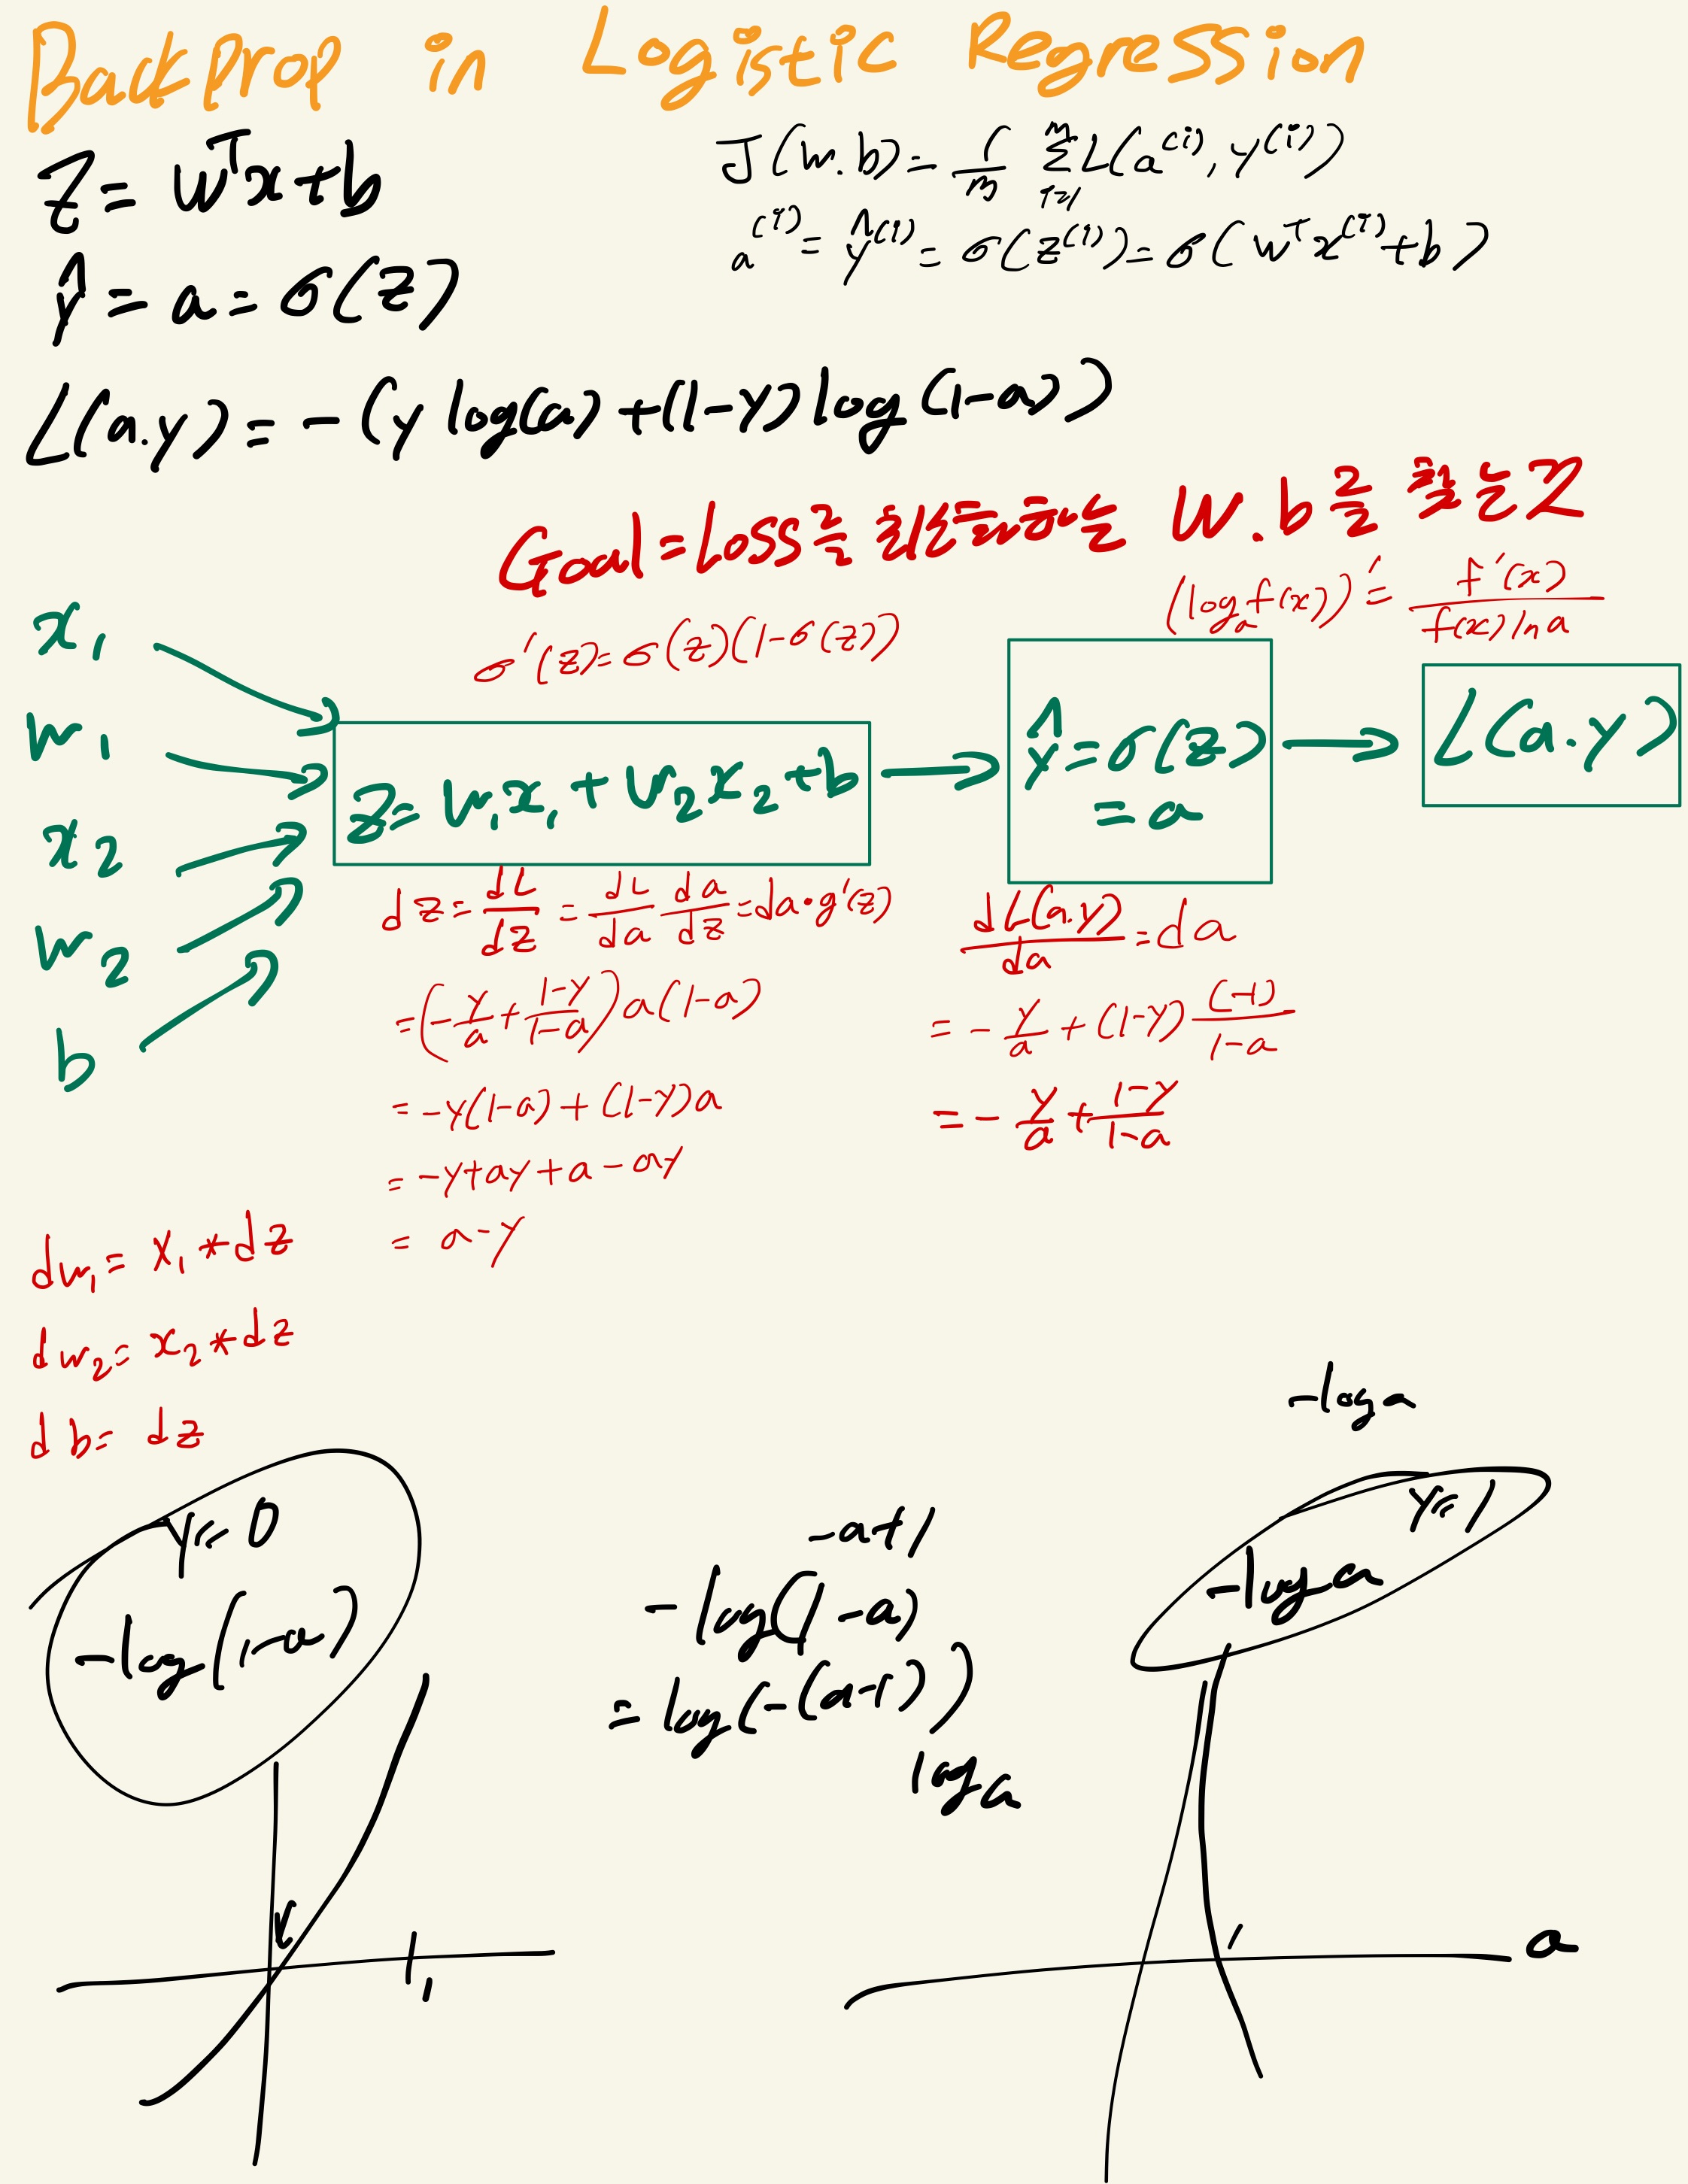 Backprop in Logistic Regression
Z = wᵀx+b
J(w.b) = 1/m Σᵢ₌₁ᵐ L(a⁽ⁱ⁾, y⁽ⁱ⁾)
a⁽ⁱ⁾ = ŷ⁽ⁱ⁾ = σ(z⁽ⁱ⁾) = σ(wᵀx⁽ⁱ⁾+b)
ŷ = a = σ(z)
L(a.y) = -(y log(a) + (1-y) log (1-a))
Goal = Loss를 최소화하는 W.b를 찾는 것
(logₐf(x))' = f'(x) / f(x) ln a
σ'(z) = σ(z)(1-σ(z))
x₁
w₁
x₂
w₂
b
z = w₁x₁ + w₂x₂ + b
ŷ = σ(z)
= a
L(a.y)
dz = dL/dz = dL/da da/dz = da·g'(z)
= (-y/a + 1-y/1-a) a(1-a)
= -y(1-a) + (1-y)a
= -y+ay+a-ay
= a-y
dL(a.y)/da = da
= -y/a + (1-y) (-1)/1-a
= -y/a + 1-y/1-a
dw₁ = x₁ * dz
dw₂ = x₂ * dz
db = dz
-log a
y=0
-log(1-a)
1
-a+1
-log(1-a)
= log(-(a-1))
log a
y=1
-log a
1
a